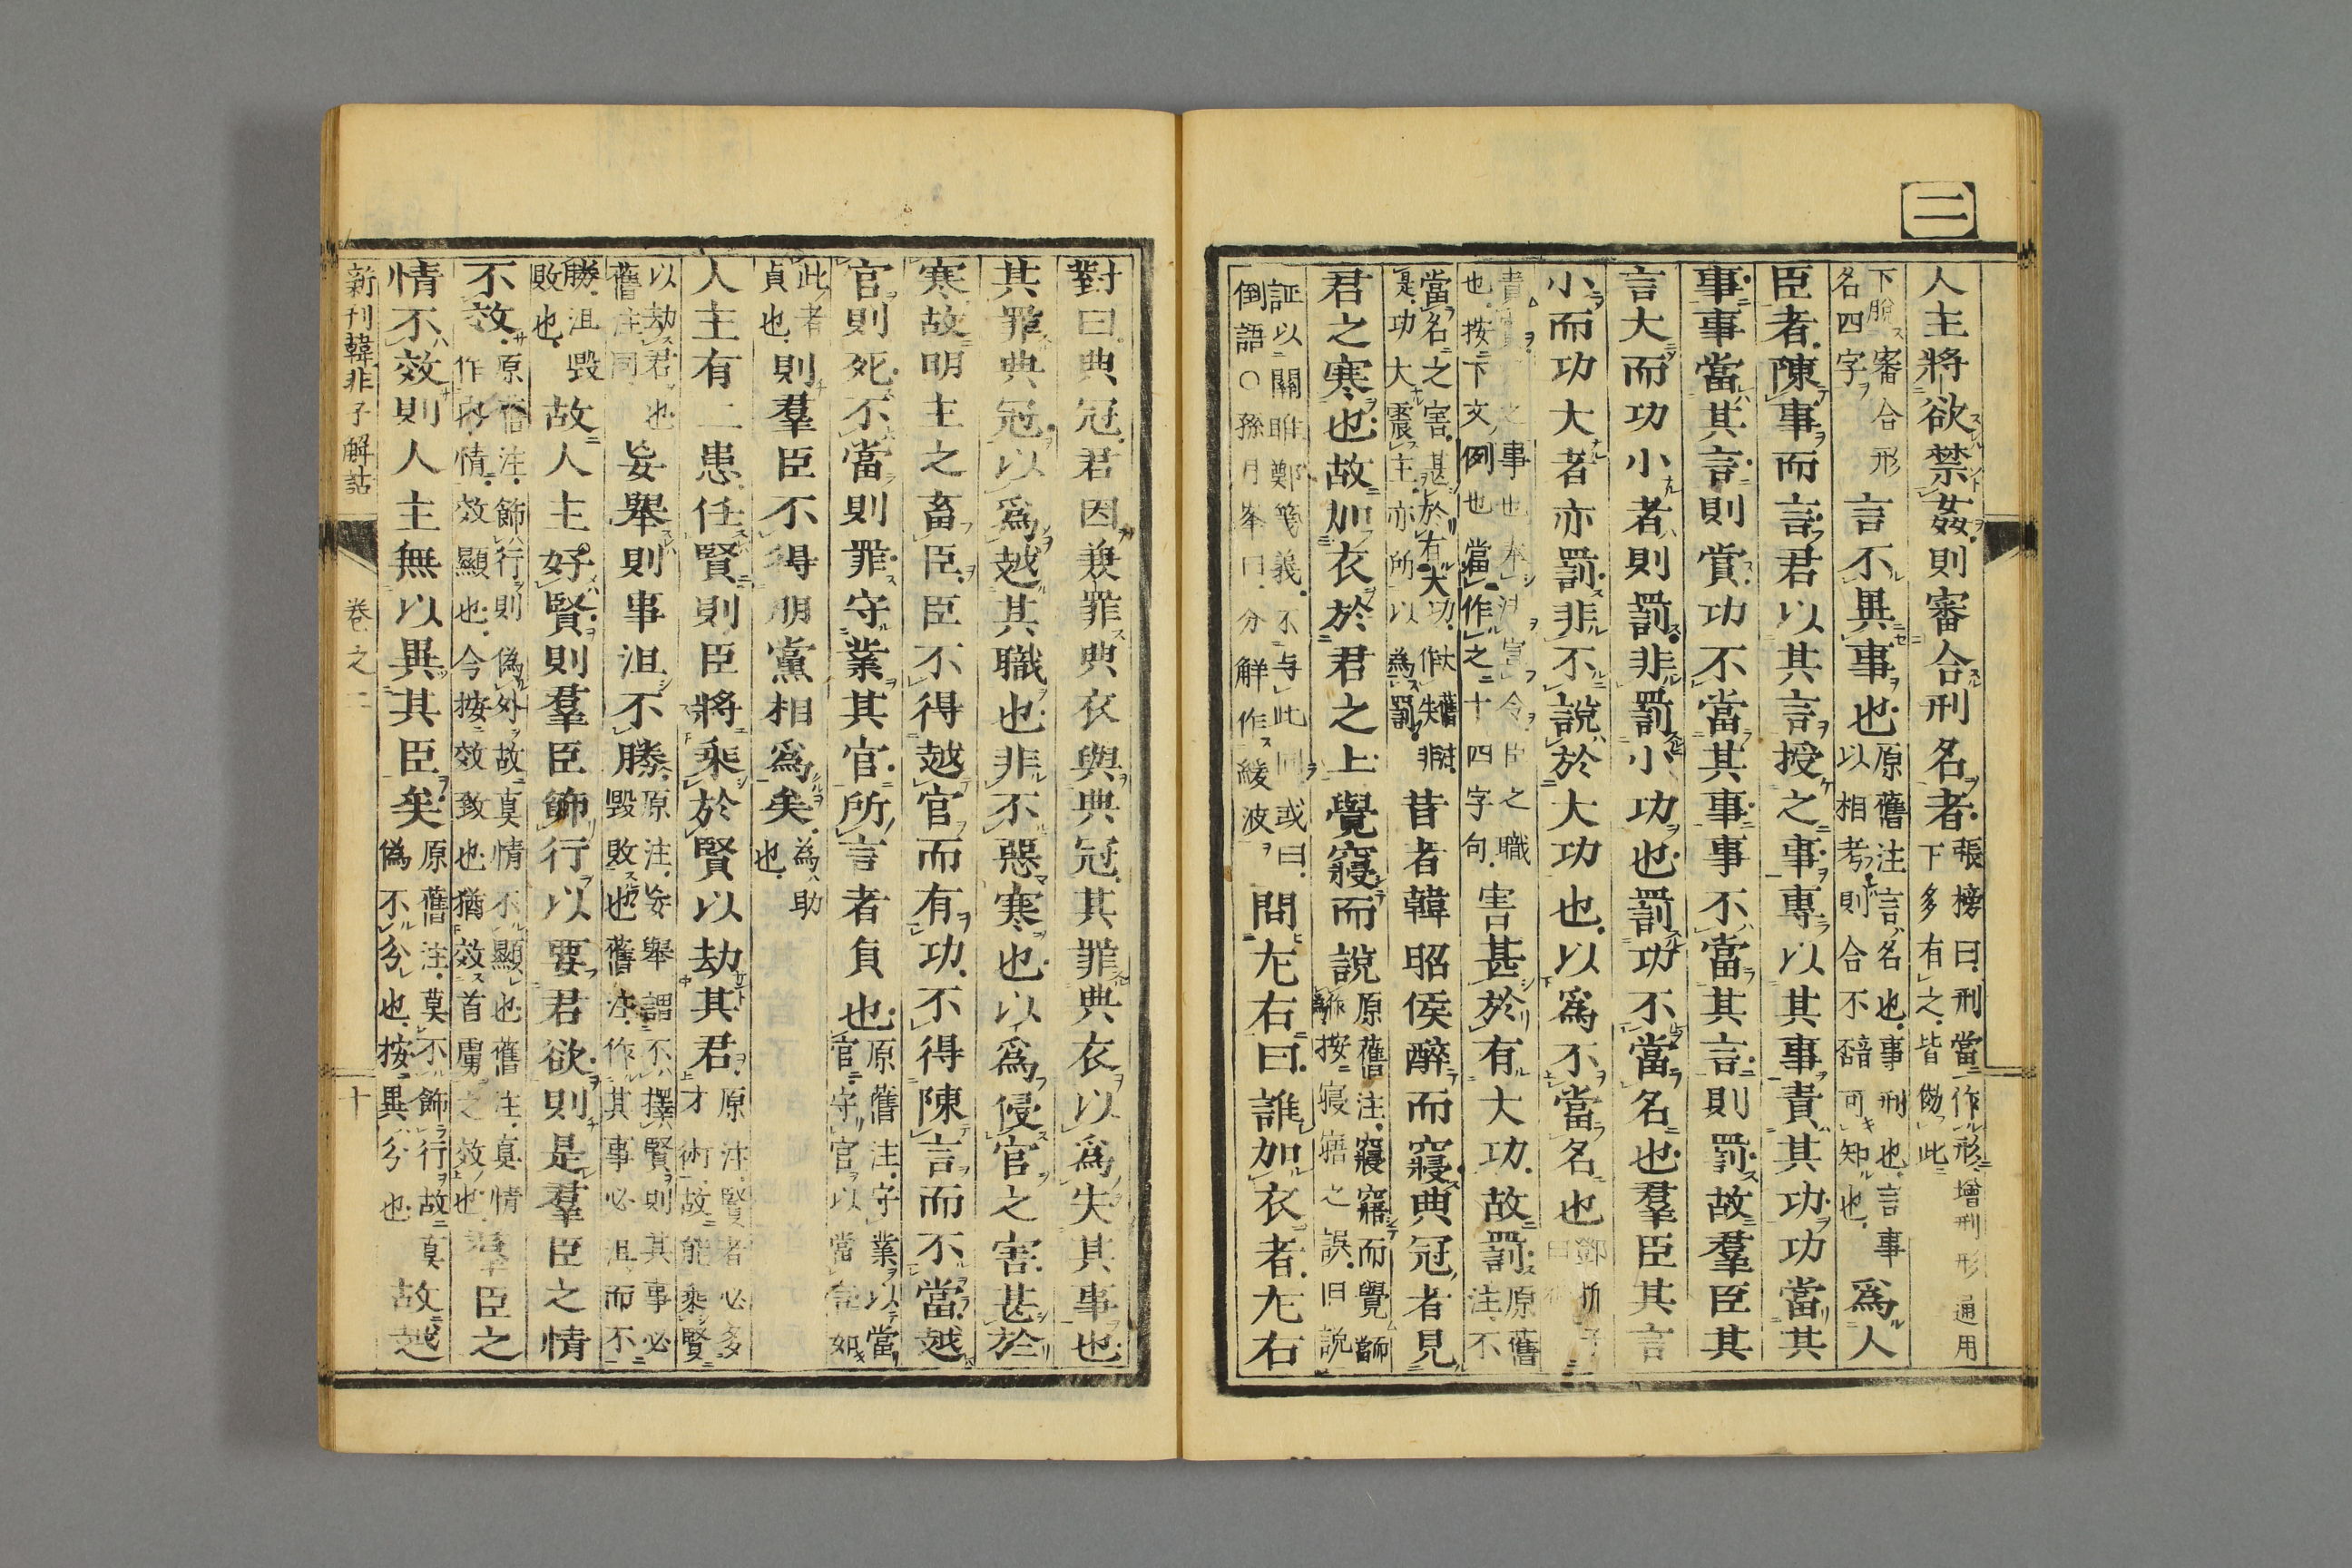 二
人主將欲禁姦則審合刑名者張榜曰刑當作形增刑形通用
下多有之皆倣此
下脫審合形
名四字言不異事也原舊注言名也事刑也言事
以相考則合不合可知也爲人
臣者陳事而言君以其言授之事事專以其事責其功功當其
事事當其言則賞功不當其事事不當其言則罰故羣臣其
言大而功小者則罰非罰小功也罰功不當名也羣臣其言
小而功大者亦罰非不說於大功也以爲不當名也
事也
之職
也按下文例也當作之十四字句害甚於有大功故罰原舊
注不
當名之害甚於有大功
是功大震主亦所以爲罰昔者韓昭侯醉而寢典冠者見
君之寒也故加衣於君之上覺寢而說原舊注寢寤而覺
按寢寤之誤旧說
証以關雎鄭箋義不与此同或曰
倒語〇孫月峯曰分解作綾波問左右曰誰加衣者左右
對曰典冠君因兼罪典衣與典冠其罪典衣以爲失其事也
其罪典冠以爲越其職也非不惡寒也以爲侵官之害甚於
寒故明主之畜臣臣不得越官而有功不得陳言而不當越
官則死不當則罪守業其官所言者貞也原舊注守業以當
官守官以當言如
此者
貞也則羣臣不得朋黨相爲矣爲助
也
人主有二患任賢則臣將乘於賢以劫其君原注賢者必多
才術故能乘賢
以劫君也
舊注同妄舉則事沮不勝原注妄舉謂不擇賢則其事必
毀敗也舊注作其事必沮而不
勝沮毀
敗也故人主好賢則羣臣飾行以要君欲則是羣臣之情
不效原舊注飾行則偽外故真情不顯也舊注真情
作情效顯也今按效致也猶效首虜之效也羣臣之
情不效則人主無以異其臣矣原舊注莫不飾行故真
偽不分也按異分也故越
新刊韓非子解詁
卷之二
十